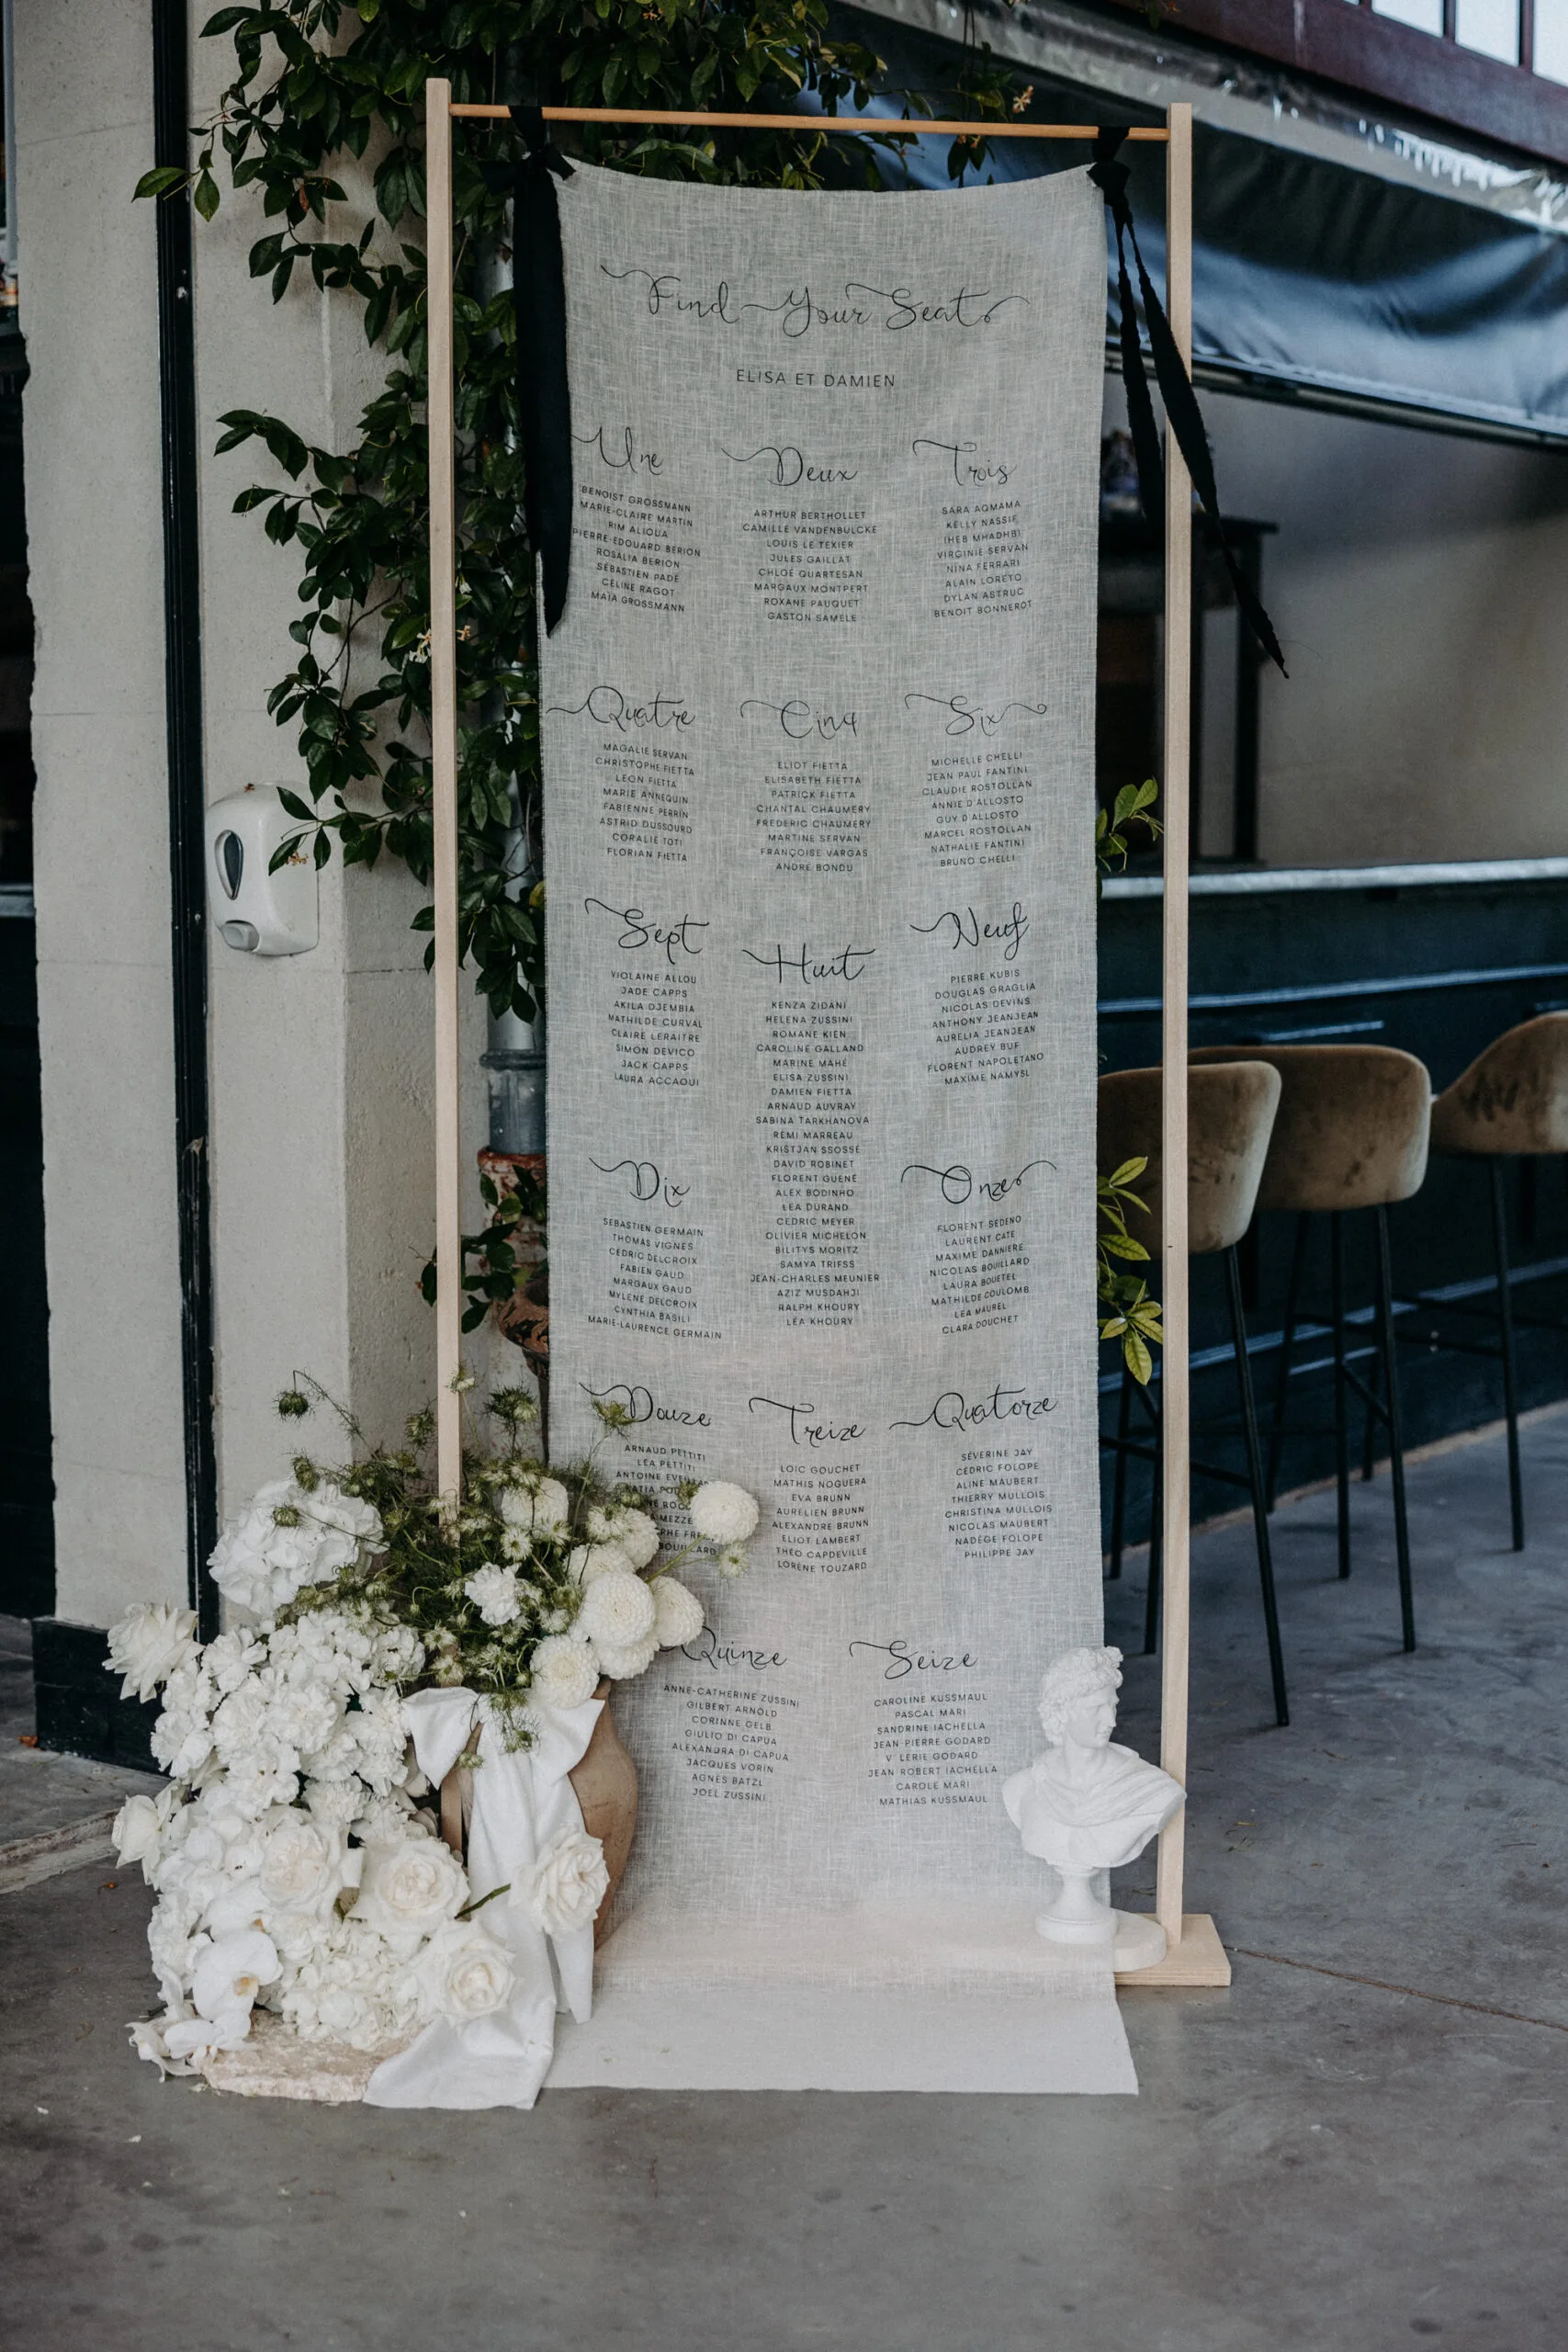 Find Your Seat
ELISA ET DAMIEN
Une
BENOIST GROSSMANN
MARIE-CLAIRE MARTIN
RIM ALIOUA
PIERRE-EDOUARD BERION
ROSALIA BERION
SÉBASTIEN PADE
CÉLINE RAGOT
MAÏA GROSSMANN
Deux
ARTHUR BERTHOLLET
CAMILLE VANDENBULCKE
LOUIS LE TEXIER
JULES GAILLAT
CHLOÉ QUARTESAN
MARGAUX MONTPERT
ROXANE PAUQUET
GASTON SAMELE
Trois
SARA AQMAMA
KELLY NASSIF
IHEB MHADHBI
VIRGINIE SERVAN
NINA FERRARI
ALAIN LORETO
DYLAN ASTRUC
BENOIT BONNEROT
Quatre
MAGALIE SERVAN
CHRISTOPHE FIETTA
LEON FIETTA
MARIE ANNEQUIN
FABIENNE PERRIN
ASTRID DUSSOURD
CORALIE TOTI
FLORIAN FIETTA
Cinq
ELIOT FIETTA
ELISABETH FIETTA
PATRICK FIETTA
CHANTAL CHAUMERY
FREDERIC CHAUMERY
MARTINE SERVAN
FRANÇOISE VARGAS
ANDRE BONDU
Six
MICHELLE CHELLI
JEAN PAUL FANTINI
CLAUDIE ROSTOLLAN
ANNIE D'ALLOSTO
GUY D'ALLOSTO
MARCEL ROSTOLLAN
NATHALIE FANTINI
BRUNO CHELLI
Sept
VIOLAINE ALLOU
JADE CAPPS
AKILA DJEMBIA
MATHILDE CURVAL
CLAIRE LERAITRE
SIMON DEVICO
JACK CAPPS
LAURA ACCAOUI
Huit
KENZA ZIDANI
HELENA ZUSSINI
ROMANE KIEN
CAROLINE GALLAND
MARINE MAHÉ
ELISA ZUSSINI
DAMIEN FIETTA
ARNAUD AUVRAY
SABINA TARKHANOVA
RÉMI MARREAU
KRISTJAN SSOSSÉ
DAVID ROBINET
FLORENT GUENÉ
ALEX BODINHO
LEA DURAND
CEDRIC MEYER
OLIVIER MICHELON
BILITYS MORITZ
SAMYA TRIFSS
JEAN-CHARLES MEUNIER
AZIZ MUSDAHJI
RALPH KHOURY
LÉA KHOURY
Neuf
PIERRE KUBIS
DOUGLAS GRAGLIA
NICOLAS DEVINS
ANTHONY JEANJEAN
AURELIA JEANJEAN
AUDREY BUF
FLORENT NAPOLETANO
MAXIME NAMYSL
Dix
SEBASTIEN GERMAIN
THOMAS VIGNES
CÉDRIC DELCROIX
FABIEN GAUD
MARGAUX GAUD
MYLENE DELCROIX
CYNTHIA BASILI
MARIE-LAURENCE GERMAIN
Onze
FLORENT SEDENO
LAURENT CATE
MAXIME DANNIERE
NICOLAS BOUILLARD
LAURA BOUETEL
MATHILDE COULOMB
LEA MAUREL
CLARA DOUCHET
Douze
ARNAUD PETTITI
LEA PETTITI
ANTOINE
Treize
LOIC GOUCHET
MATHIS NOGUERA
EVA BRUNN
AURELIEN BRUNN
ALEXANDRE BRUNN
ELIOT LAMBERT
THÉO CAPDEVILLE
LORÈNE TOUZARD
Quatorze
SÉVERINE JAY
CÉDRIC FOLOPE
ALINE MAUBERT
THIERRY MULLOIS
CHRISTINA MULLOIS
NICOLAS MAUBERT
NADÈGE FOLOPE
PHILIPPE JAY
Quinze
ANNE-CATHERINE ZUSSINI
GILBERT ARNOLD
CORINNE GELB
GIULIO DI CAPUA
ALEXANDRA DI CAPUA
JACQUES VORIN
AGNÈS BATZL
JOEL ZUSSINI
Seize
CAROLINE KUSSMAUL
PASCAL MARI
SANDRINE IACHELLA
JEAN PIERRE GODARD
V LERIE GODARD
JEAN ROBERT IACHELLA
CAROLE MARI
MATHIAS KUSSMAUL